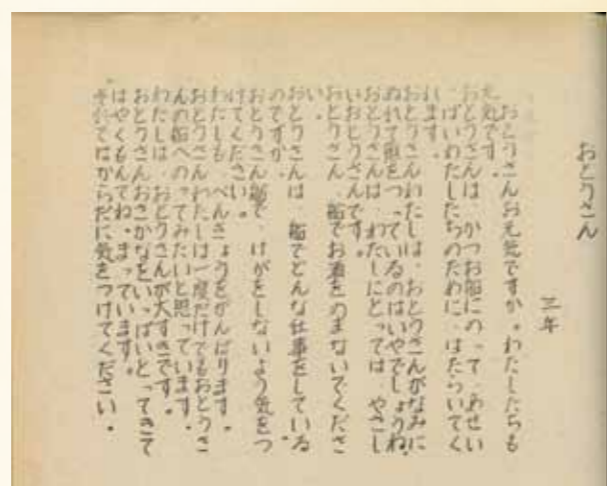 おとうさん
三年
おとうさんお元気ですか。わたしたちも
元気です。
おとうさんは、かつお船にのって、あせい
っぱいわたしたちのために、はたらいてく
れます。
おとうさんわたしは、おとうさんがなみに
ぬれて魚をつっているのはいやでしょうね。
おとうさんは、わたしにとっては、やさし
いおとうさんです。
おとうさん、船でお酒をのまないでくださ
い。
おとうさんは、船でどんな仕事をしている
のですか。
おとうさん船で、けがをしないよう気をつ
けてください。
わたしも、べんきょうをがんばります。
おとうさんわたしは一度だけでもおとうさ
んの船へのってみたいと思っています。
わたしは、おとうさんが大すきです。
おとうさんおさかなをいっぱいとってきて
はやくもんてね。まっています。
それではからだに気をつけてください。